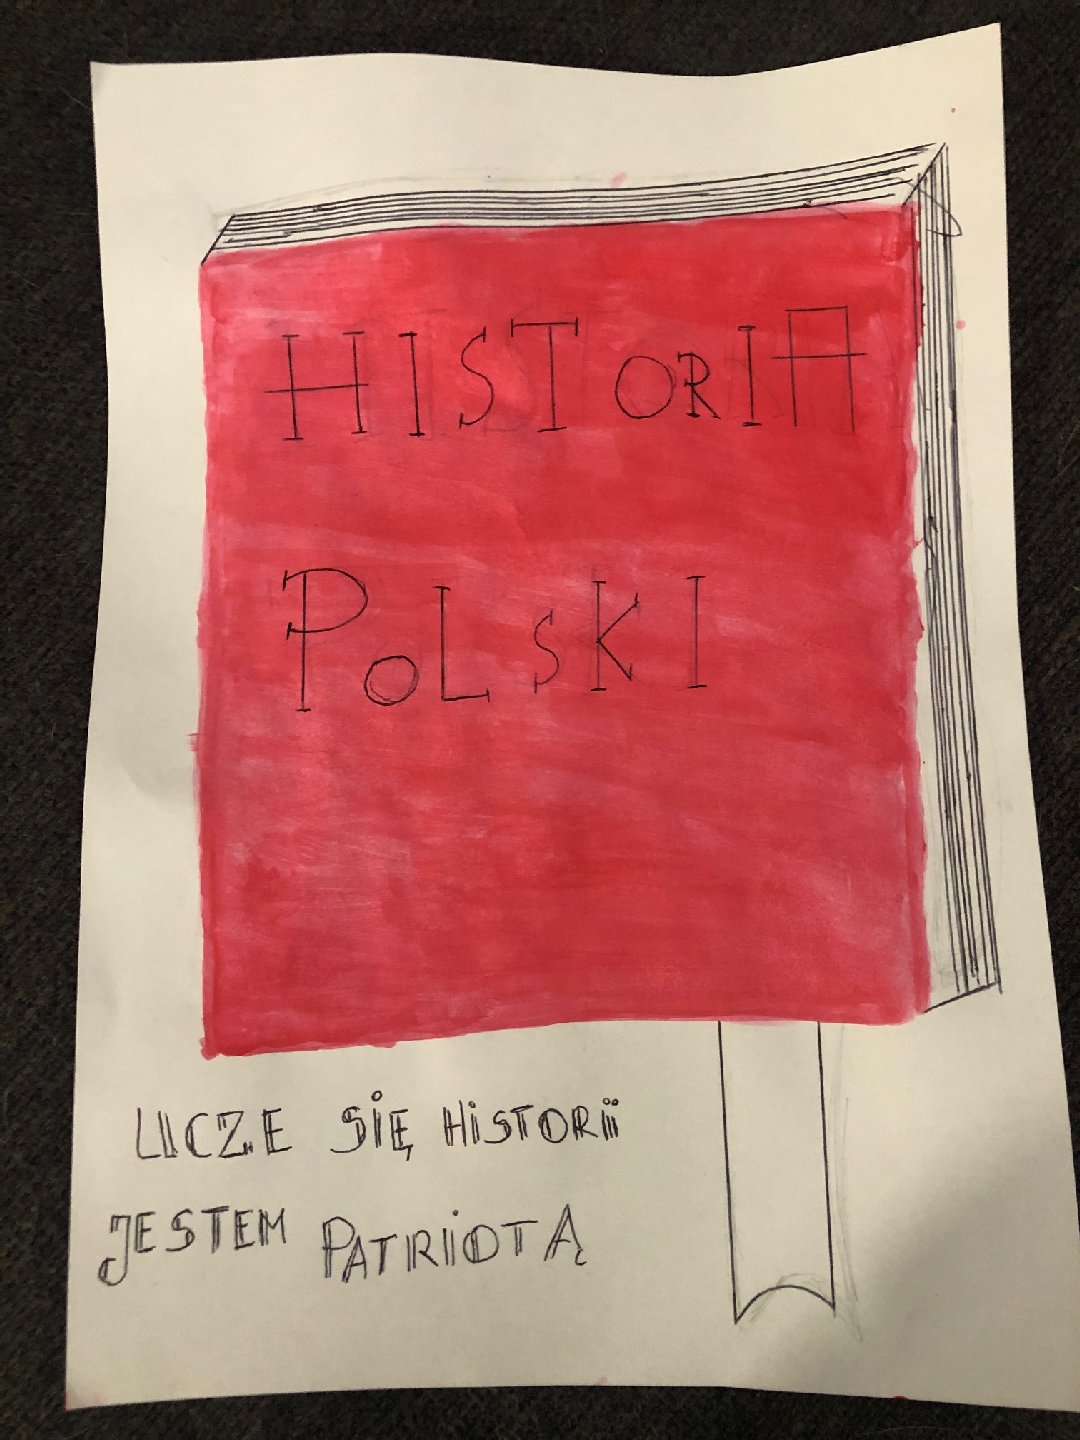 HISTORIA
POLSKI
UCZE SIĘ HISTORII
JESTEM PATRIOTĄ